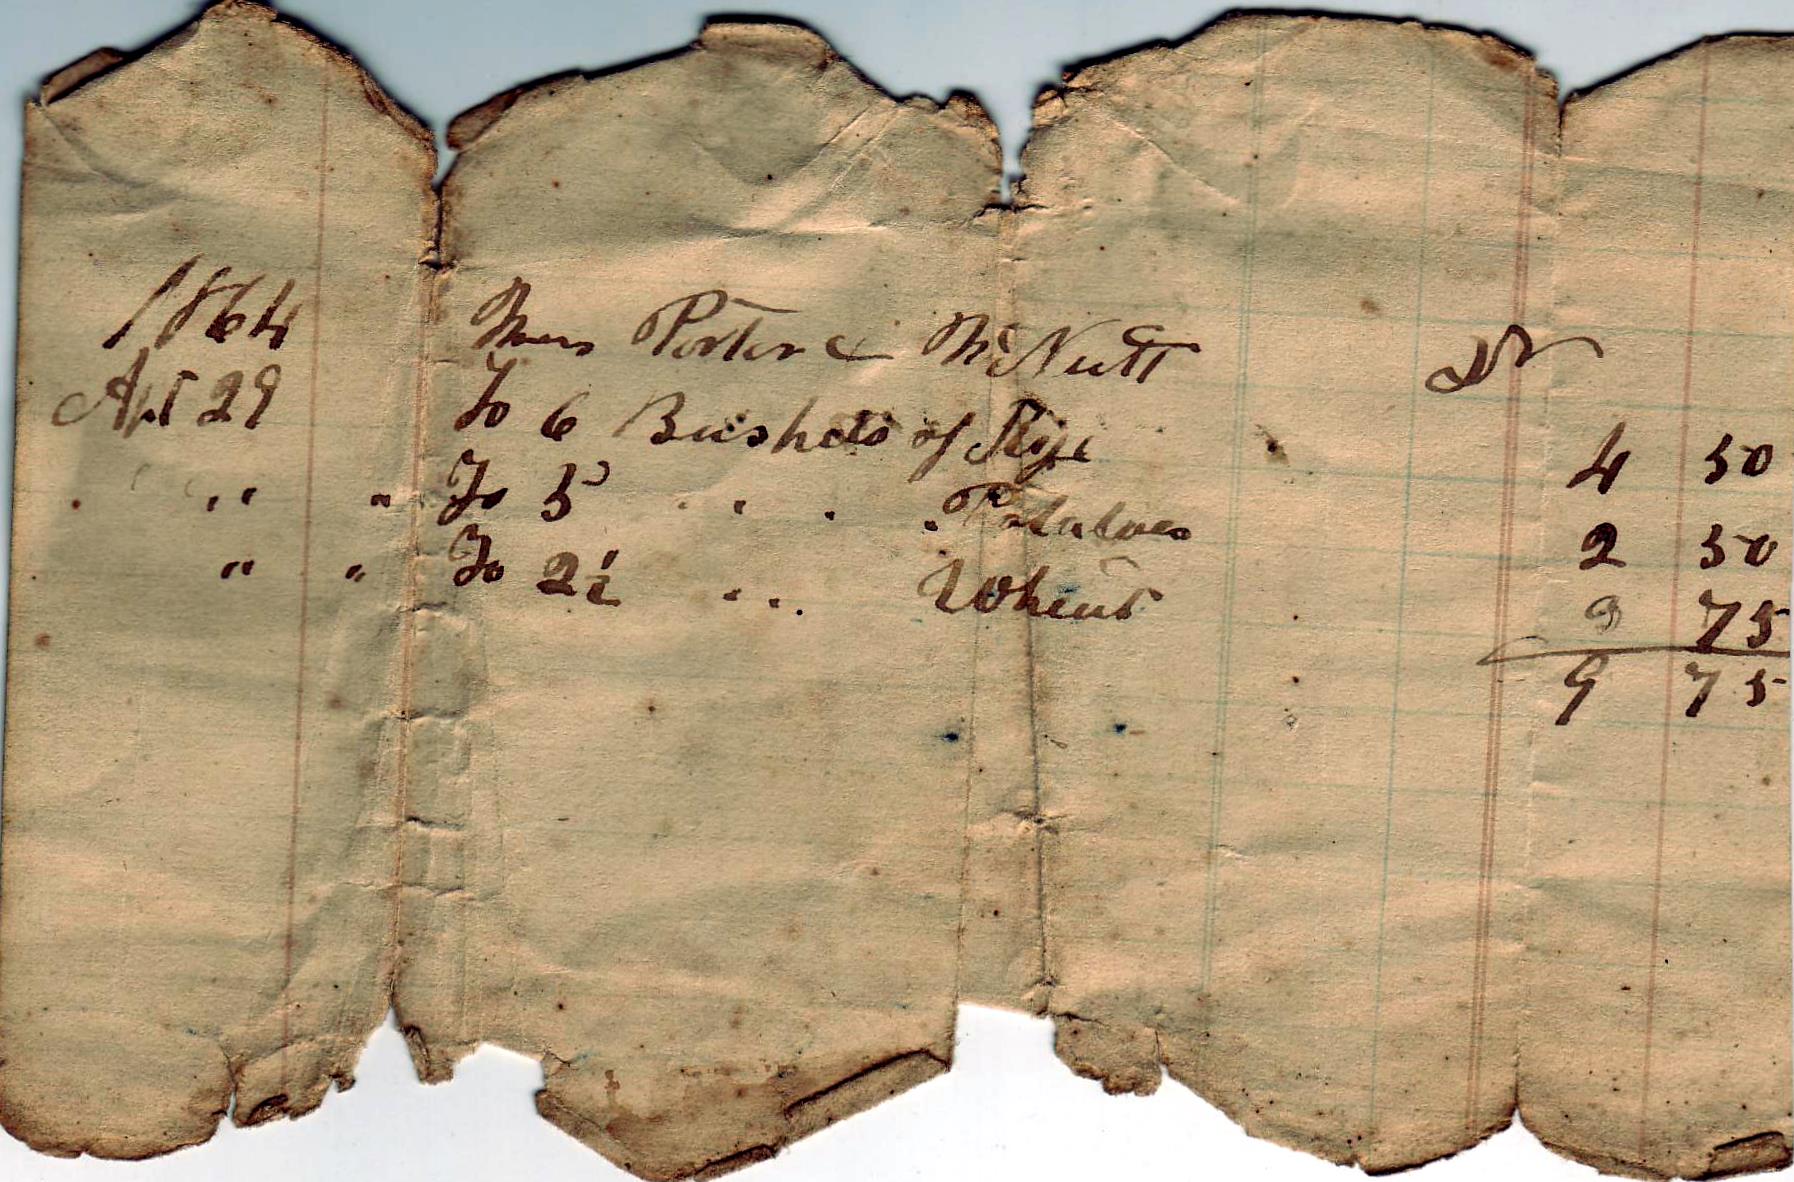 1864 Mess Porter & McNutt Dr
Apl 29 To 6 Bushels of Rye 4 50
" " To 5 " " Potatoes 2 50
" " To 2½ " " Wheat 2 75
9 75